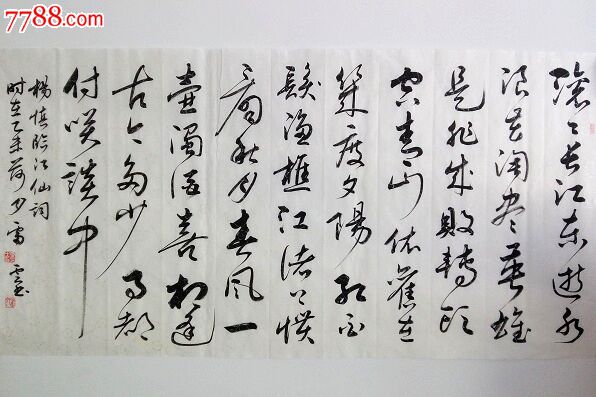 7788.com
滚滚长江东逝水
浪花淘尽英雄
是非成敗轉头
空青山依舊在
几度夕陽红白
髮渔樵江渚上惯
看秋月春风一
壶濁酒喜相逢
古今多少事都
付笑谈中
楊慎临江仙词
时在乙未荷月雷